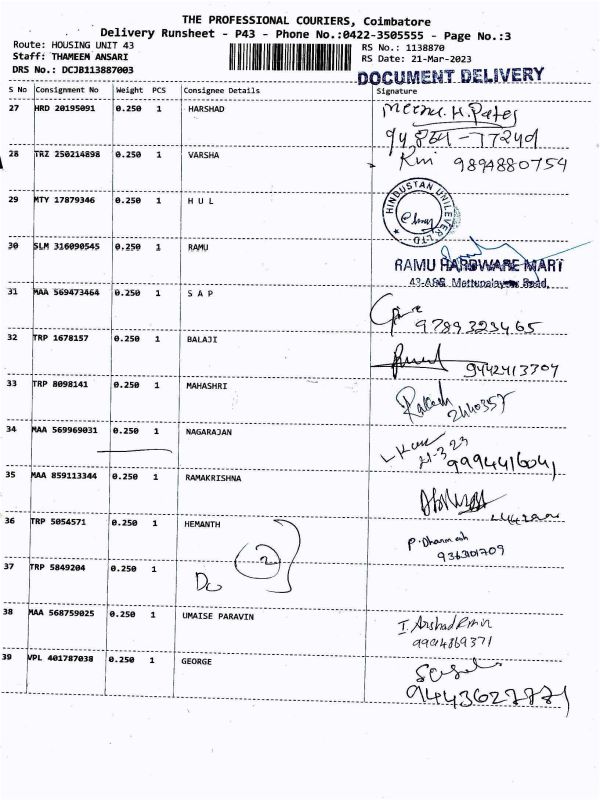 THE PROFESSIONAL COURIERS, Coimbatore
Delivery Runsheet - P43 - Phone No.:0422-3505555 - Page No.:3
Route: HOUSING UNIT 43 RS No.: 1138870
Staff: THAMEEM ANSARI RS Date: 21-Mar-2023
DRS No.: DCJB113887003 DOCUMENT DELIVERY
S No Consignment No Weight PCS Consignee Details Signature
27 HRD 20195091 0.250 1 HARSHAD
28 TRZ 250214898 0.250 1 VARSHA 9894880754
29 MTY 17879346 0.250 1 H U L HINDUSTAN UNILEVER LTD
30 SLM 316090545 0.250 1 RAMU
RAMU HARDWARE MART
31 MAA 569473464 0.250 1 S A P
9789323465
32 TRP 1678157 0.250 1 BALAJI
9442413704
33 TRP 8098141 0.250 1 MAHASHRI
2440357
34 MAA 569969031 0.250 1 NAGARAJAN
21-3-23
9994416041
35 MAA 859113344 0.250 1 RAMAKRISHNA
36 TRP 5054571 0.250 1 HEMANTH
9363101709
37 TRP 5849204 0.250 1 Do 2
38 MAA 568759025 0.250 1 UMAISE PARAVIN
9994869371
39 VPL 401787038 0.250 1 GEORGE